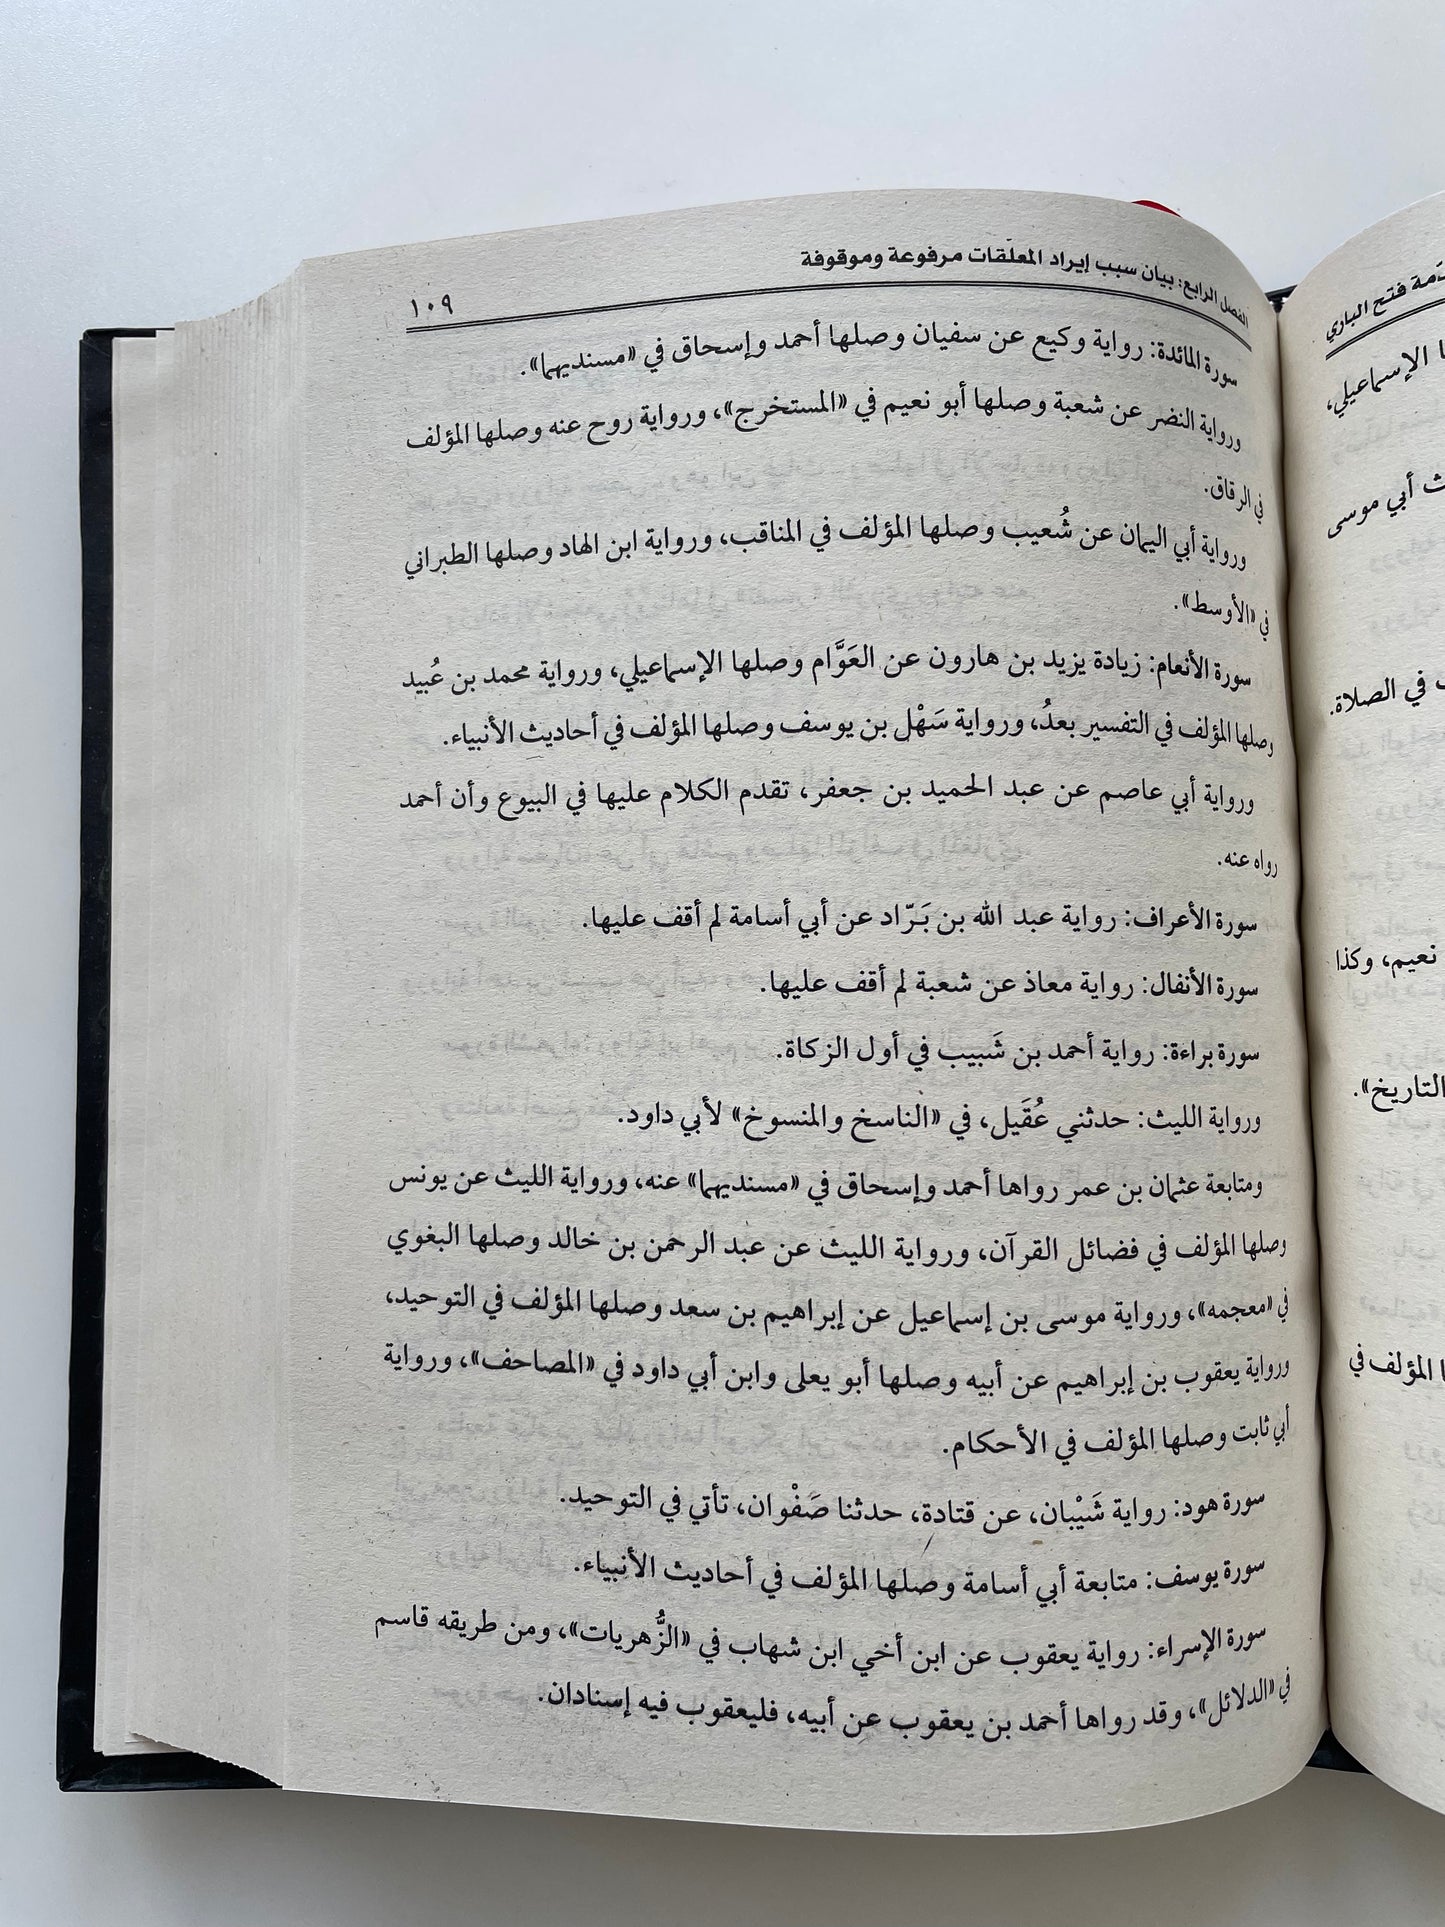 الفصل الرابع: بيان سبب إيراد المعلّقات مرفوعة وموقوفة
١٠٩
سورة المائدة: رواية وكيع عن سفيان وصلها أحمد وإسحاق في «مسنديهما».
ورواية النضر عن شعبة وصلها أبو نعيم في «المستخرج»، ورواية روح عنه وصلها المؤلف
في الرقاق.
ورواية أبي اليمان عن شُعيب وصلها المؤلف في المناقب، ورواية ابن الهاد وصلها الطبراني
في «الأوسط».
سورة الأنعام: زيادة يزيد بن هارون عن العَوَّام وصلها الإسماعيلي، ورواية محمد بن عُبيد
وصلها المؤلف في التفسير بعدُ، ورواية سَهْل بن يوسف وصلها المؤلف في أحاديث الأنبياء.
ورواية أبي عاصم عن عبد الحميد بن جعفر، تقدم الكلام عليها في البيوع وأن أحمد
رواه عنه.
سورة الأعراف: رواية عبد الله بن بَرّاد عن أبي أسامة لم أقف عليها.
سورة الأنفال: رواية معاذ عن شعبة لم أقف عليها.
سورة براءة: رواية أحمد بن شَبيب في أول الزكاة.
ورواية الليث: حدثني عُقَيل، في «الناسخ والمنسوخ» لأبي داود.
ومتابعة عثمان بن عمر رواها أحمد وإسحاق في «مسنديهما» عنه، ورواية الليث عن يونس
وصلها المؤلف في فضائل القرآن، ورواية الليث عن عبد الرحمن بن خالد وصلها البغوي
في «معجمه»، ورواية موسى بن إسماعيل عن إبراهيم بن سعد وصلها المؤلف في التوحيد،
ورواية يعقوب بن إبراهيم عن أبيه وصلها أبو يعلى وابن أبي داود في «المصاحف»، ورواية
أبي ثابت وصلها المؤلف في الأحكام.
سورة هود: رواية شَيْبان، عن قتادة، حدثنا صَفْوان، تأتي في التوحيد.
سورة يوسف: متابعة أبي أسامة وصلها المؤلف في أحاديث الأنبياء.
سورة الإسراء: رواية يعقوب عن ابن أخي ابن شهاب في «الزُّهريات»، ومن طريقه قاسم
في «الدلائل»، وقد رواها أحمد بن يعقوب عن أبيه، فليعقوب فيه إسنادان.
فتح الباري
الإسماعيلي،
أبي موسى
في الصلاة.
نعيم، وكذا
التاريخ».
المؤلف في